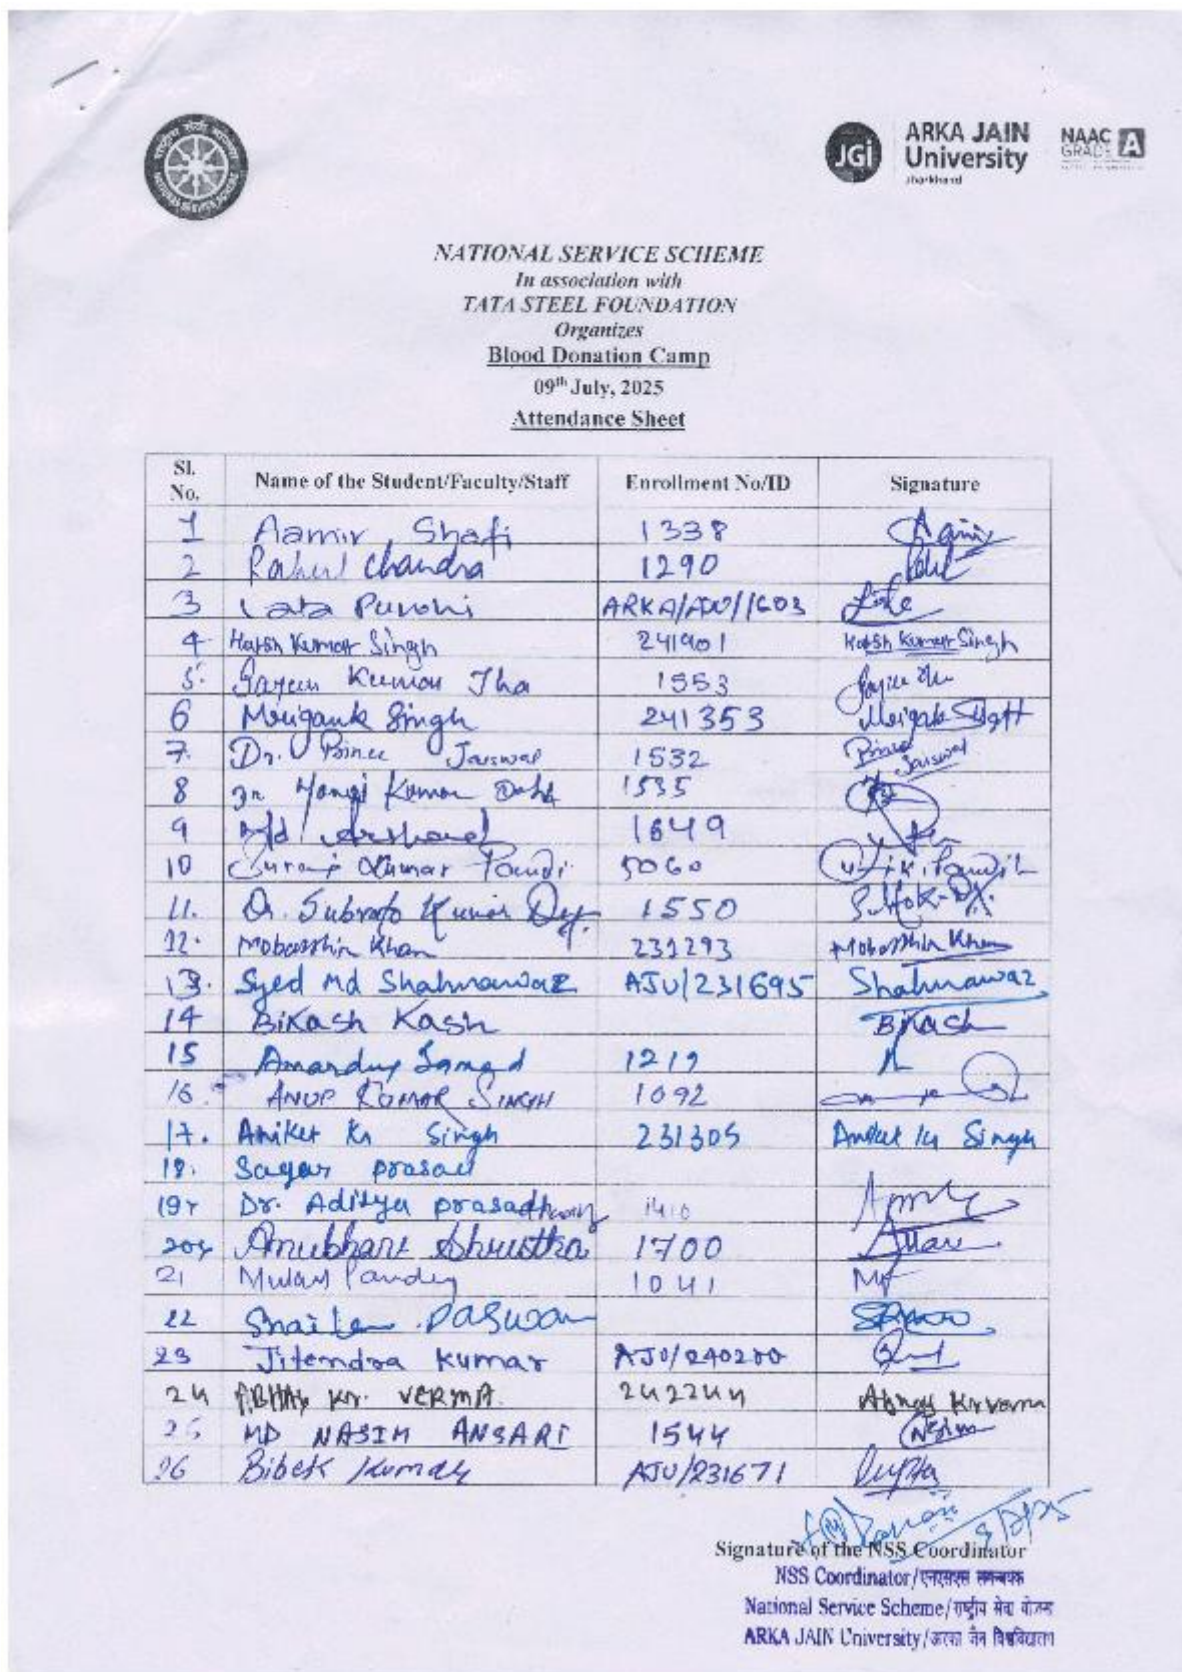 JGi
ARKA JAIN
University
Jharkhand
NAAC
GRADE A
NATIONAL SERVICE SCHEME
In association with
TATA STEEL FOUNDATION
Organizes
Blood Donation Camp
09th July, 2025
Attendance Sheet
Sl. No. Name of the Student/Faculty/Staff Enrollment No/ID Signature
1 Aamir Shafi 1338
2 Rahul Chandra 1290
3 Lata Purohi ARKA/AJU/1603
4 Harsh Kumar Singh 241901 Harsh Kumar Singh
5. Kumar Jha 1553
6 Mrigank Singh 241353
7. Dr. Prince Jaiswal 1532 Prince Jaiswal
8 Kumar 1535
9 Md Arshad 1649
10 Kumar 5060
11. Dr. Subrato Kumar Dey 1550
12. Mobasshir Khan 231293 Mobasshir Khan
13. Syed Md Shahnawaz AJU/231695 Shahnawaz
14 Bikash Kash Bikash
15 1219
16. ANUP KUMAR SINGH 1092
17. Aniket Kr Singh 231305 Aniket Kr Singh
18. Sagar prasad
19 Dr. Aditya prasad 1410
20 Anubhare 1700
21 Pandey 1041
22 Paswan
23 Jitendra Kumar AJU/240200
24 ABHAY Kr. VERMA 242244 Abhay Kr Varma
25 MD NASIM ANSARI 1544 Nasim
26 Bibek Kumar AJU/231671 Gupta
Signature of the NSS Coordinator
NSS Coordinator/एनएसएस समन्वयक
National Service Scheme/राष्ट्रीय सेवा योजना
ARKA JAIN University/अरका जैन विश्वविद्यालय